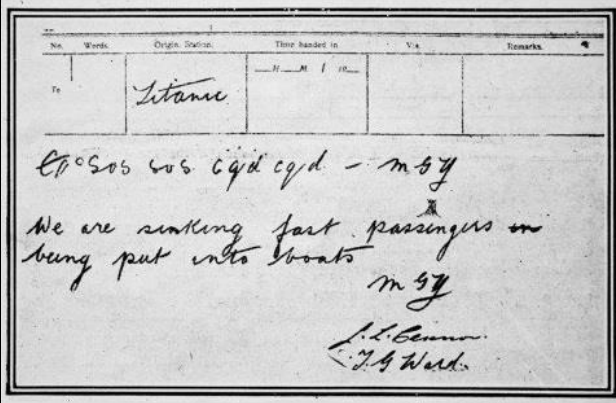 No. Words. Origin. Station. Time handed in. Via. Remarks.
H M 19
To
Titanic
SOS SOS cqd cqd - MGY
We are sinking fast passengers
being put into boats
MGY
T G Ward.